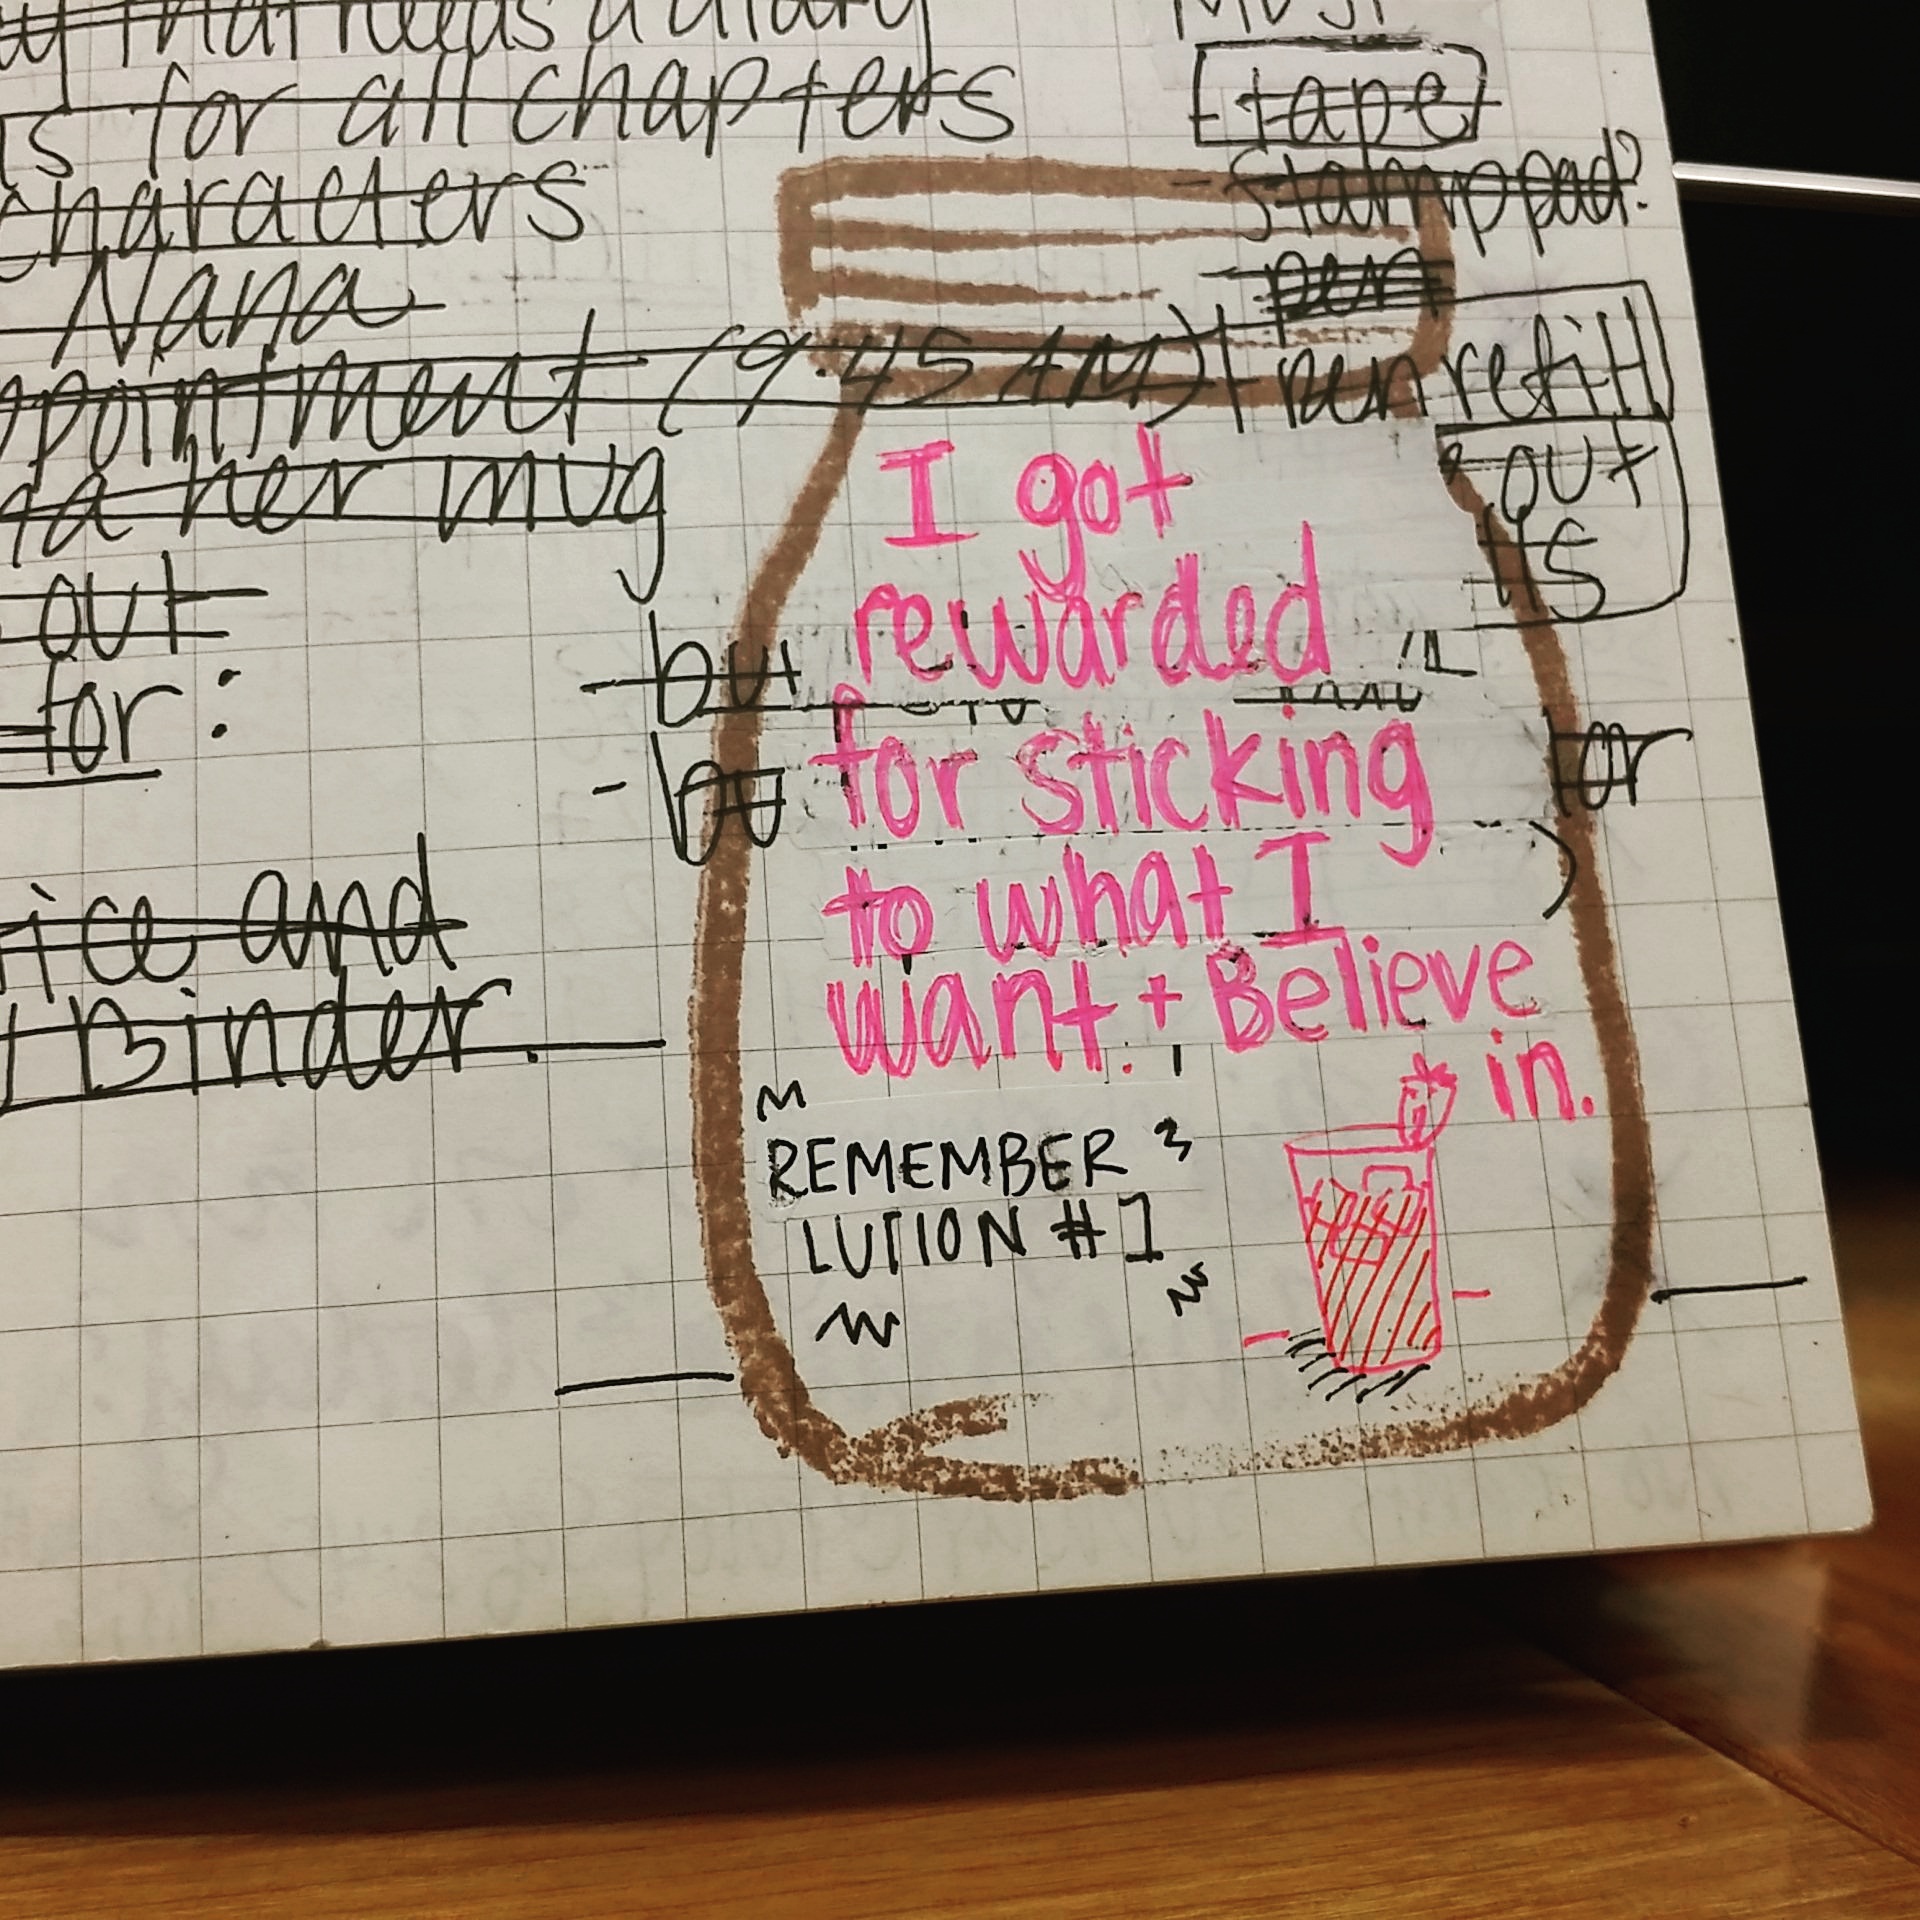 that needs a diary
for all chapters
characters
Nana
ppointment (9:45 AM)
her mug
out
for:
ice and
Binder.
MUST
tape
- stamp pad?
- pen
- pen refill
out
- bu
- bu
for
I got
rewarded
for sticking
to what I
want. + Believe
in.
REMEMBER
LUTION #1